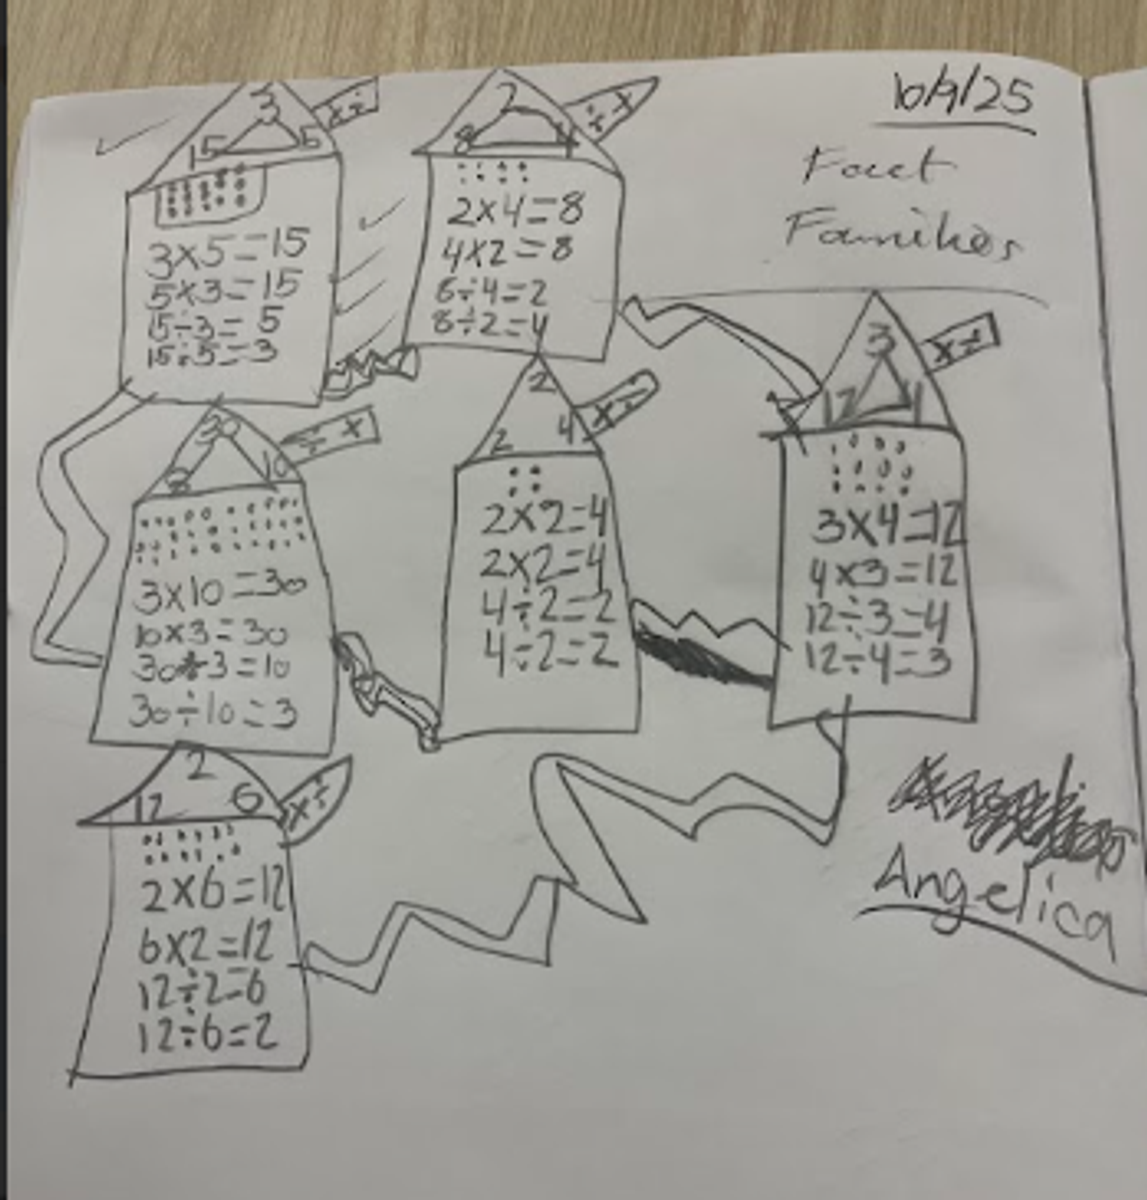 10/9/25
Fact
Families
3
15 5
× ÷
3×5=15
5×3=15
15÷3=5
15÷5=3
2
8 4
÷ ×
2×4=8
4×2=8
8÷4=2
8÷2=4
3
12 4
× ÷
3×4=12
4×3=12
12÷3=4
12÷4=3
30
3 10
÷ ×
3×10=30
10×3=30
30÷3=10
30÷10=3
2
2 4
× ÷
2×2=4
2×2=4
4÷2=2
4÷2=2
2
12 6
× ÷
2×6=12
6×2=12
12÷2=6
12÷6=2
Angelica